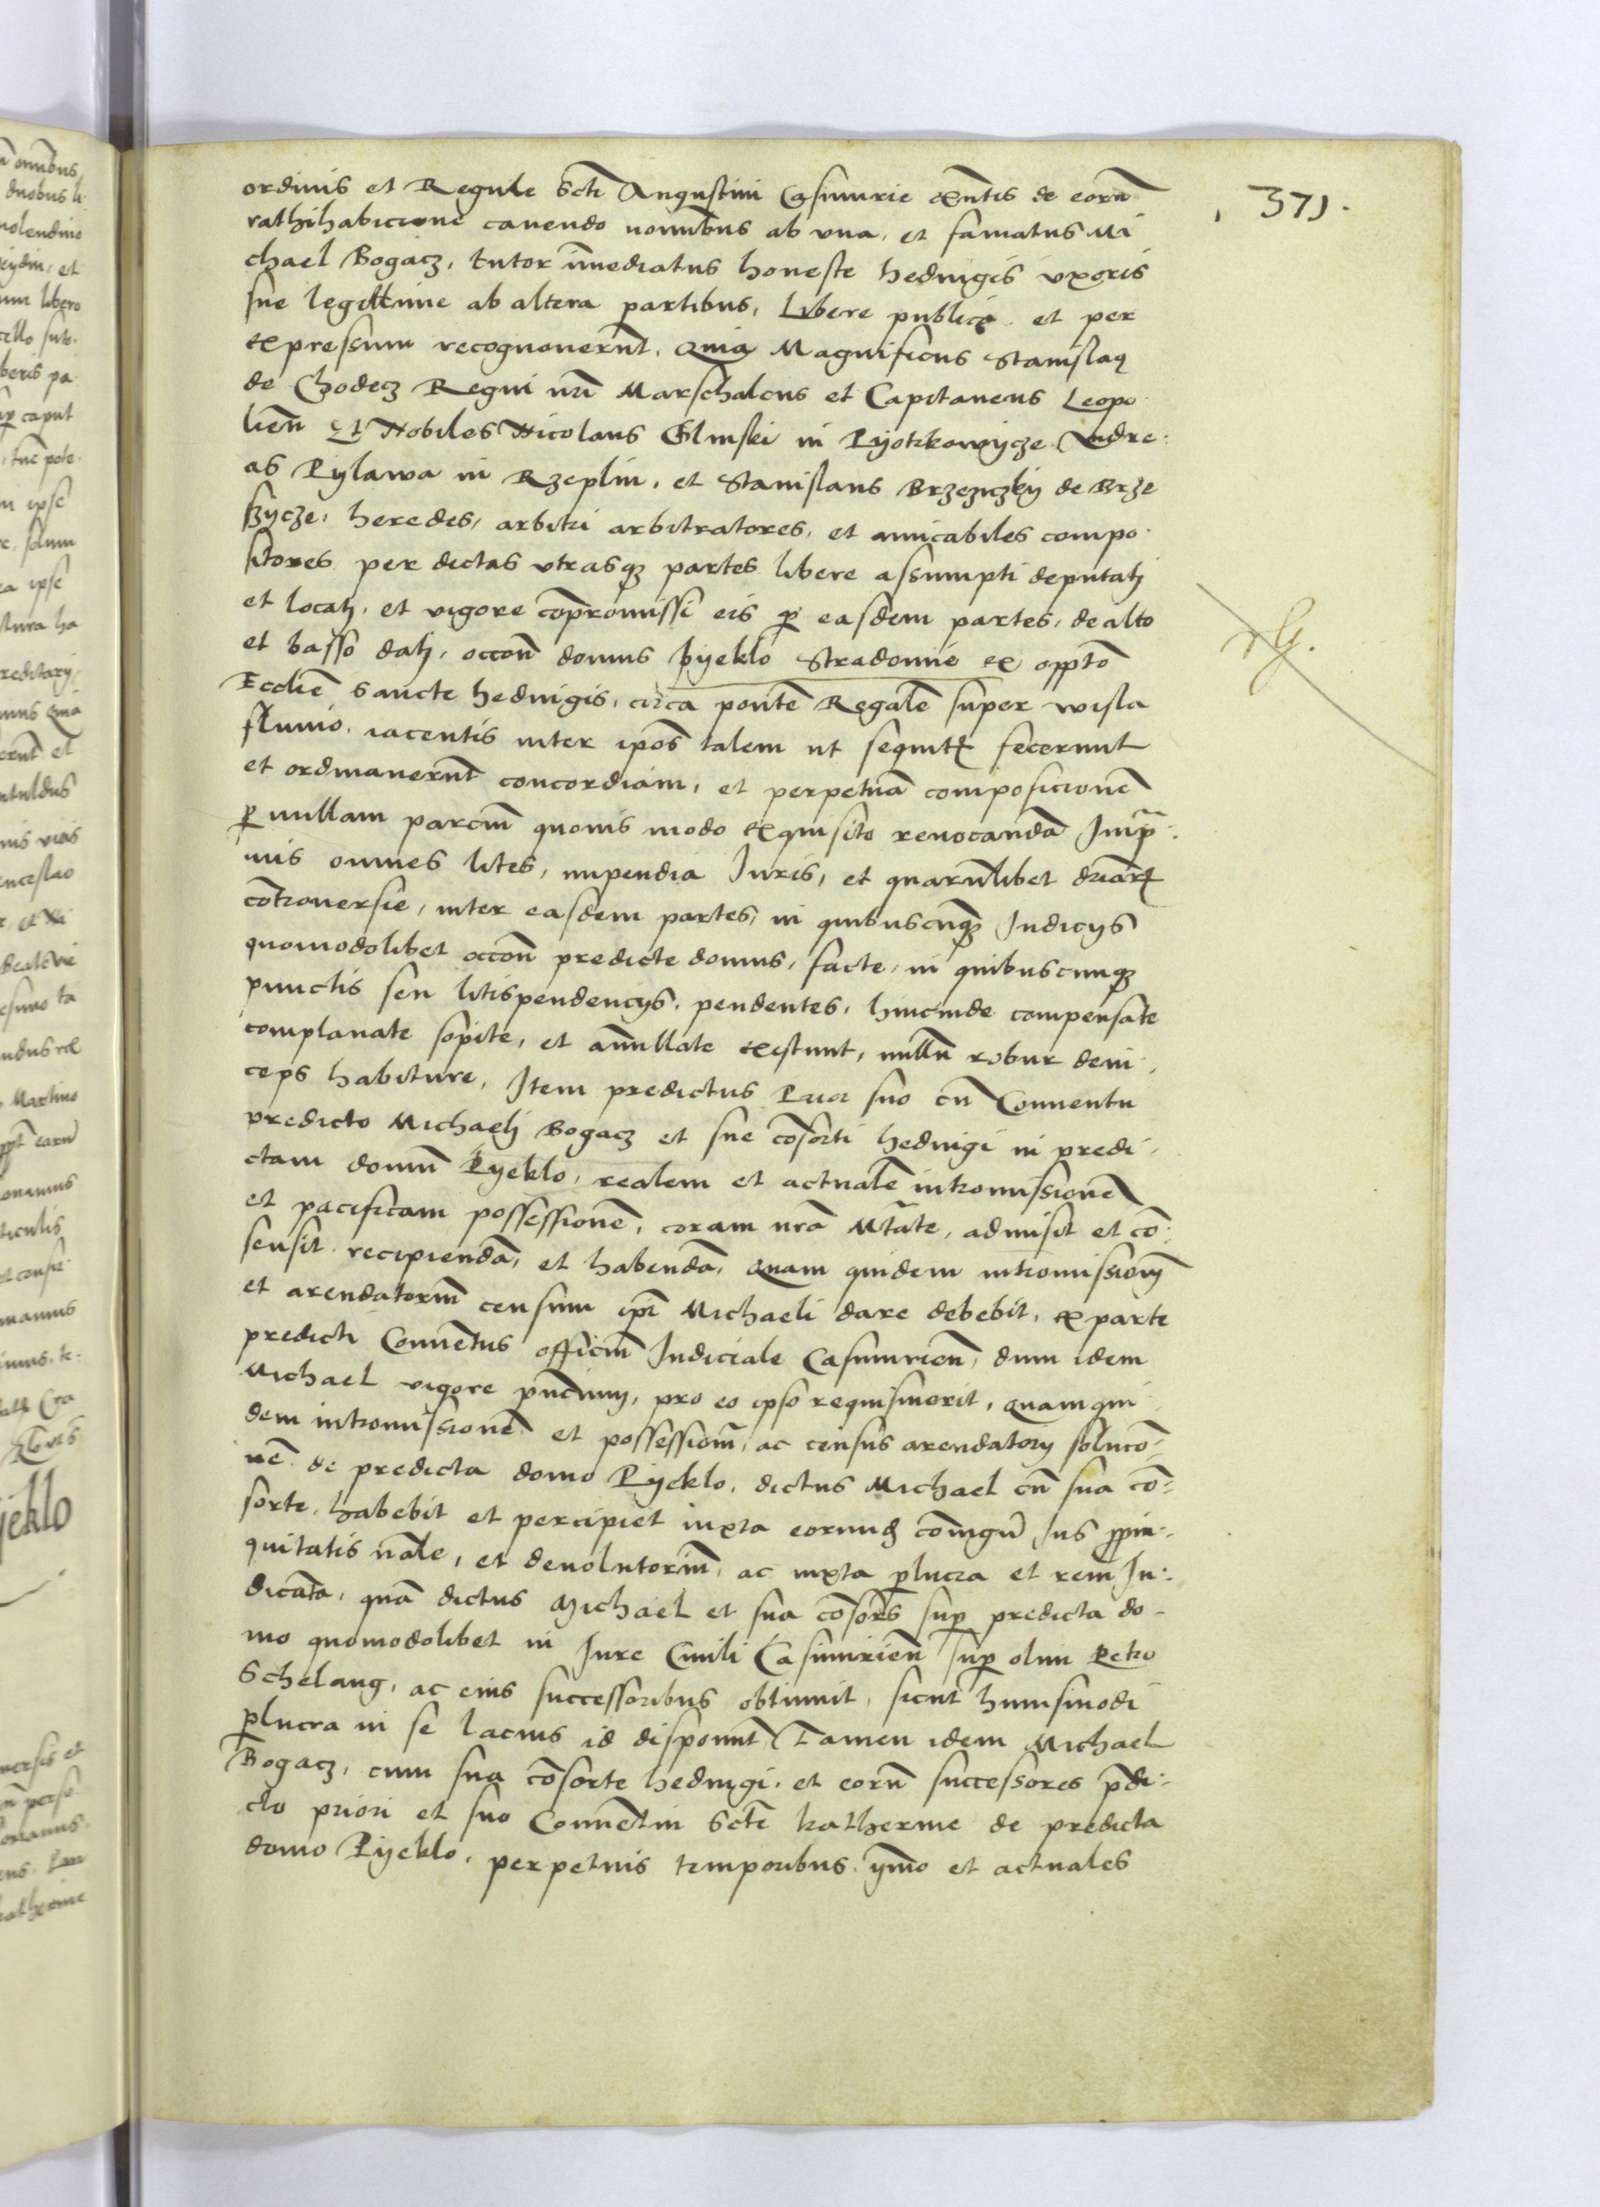 371.
ordinis et Regule Scti Augustini Casimirie exntis de eorum
rathihabicione cavendo nominibus ab una, et famatus Mi
chael Bogacz, tutor immediatus honeste hedvigis uxoris
sue legittime ab altera partibus, Libere publice et per
expressum recognoverunt. Quia Magnificus Stanislaus
de Chodecz Regni nri Marschalcus et Capitaneus Leopo
lien Et Nobiles Nicolaus Glinski in Pyotrkowycze Andre:
as Pylawa in Rzeplin, et Stanislaus Brzeziczky de Brze
szycze, heredes, arbitri arbitratores, et amicabiles compo
sitores per dictas utrasque partes libere assumpti deputati
et locati, et vigore compromissi eis per easdem partes, de alto
et basso dati, occone domus pyeklo Stradomie ex oppto
Ecclie sancte hedvigis, circa pontem Regalem super wisla
fluvio iacentis inter ipos talem ut sequitur fecerunt
et ordinaverunt concordiam, et perpetuam composicionem
per nullam parcium quovis modo exquisito revocandam Impri:
mis omnes lites, impendia Juris, et quarumlibet
controversie, inter easdem partes, in quibuscunque Judicys
quomodolibet occone predicte domus, facte, in quibuscunque
punctis seu litispendencys, pendentes, hincinde compensate
complanate sopite, et annullate existunt, nullum robur dein
ceps habiture, Item predictus Prior suo cum Conventu
predicto Michaeli Bogacz et sue consorti hedvigi in predi
ctam domum Pyeklo, realem et actualem intromissionem
et pacificam possessionem, coram nra Mtate, admisit et con:
sensit recipiendam, et habendam, Quam quidem intromissionem
et arendatorium censum ipi Michaeli dare debebit, ex parte
predicti Conventus officium Judiciale Casimirien, dum idem
Michael vigore pncium, pro eo ipso requisiverit, Quam qui
dem intromissionem et possessionem, ac census arendatory solucio
nem de predicta domo Pyeklo, dictus Michael cum sua con
sorte, habebit et percipiet iuxta eorund coniugum Jus propin:
quitatis nale, et devolutorium, ac iuxta perlucra et rem Ju:
dicata, quam dictus Michael et sua consors super predicta do
mo quomodolibet in Jure Civili Casimirien super olim Petro
Schelang, ac eius successoribus obtinuit, sicut huiusmodi
perlucra in se lacius id disponunt Tamen idem Michael
Bogacz, cum sua consorte hedvigi, et eorum successores predi:
cto priori et suo Conventui Scte katherine de predicta
domo Pyeklo, perpetuis temporibus ymo et actuales